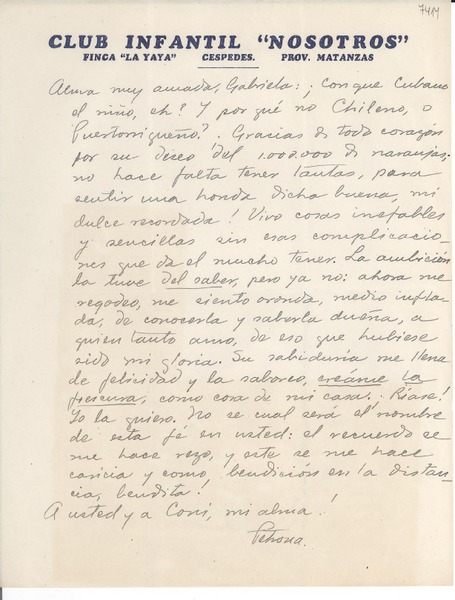 7414
CLUB INFANTIL "NOSOTROS"
FINCA "LA YAYA" CESPEDES. PROV. MATANZAS
Alma muy amada, Gabriela: ¡con que Cubano
el niño, eh? Y por qué no Chileno, o
Puertorriqueño? Gracias de todo corazón
por su deseo del 1.000.000 de naranjas:
no hace falta tener tantas, para
sentir una honda dicha buena, mi
dulce recordada! Vivo cosas inefables
y sencillas sin esas complicacio-
nes que da el mucho tener. La ambición
la tuve del saber, pero ya no: ahora me
regodeo, me siento oronda, medio infla-
da, de conocerla y saberla dueña, a
quien tanto amo, de eso que hubiese
sido mi gloria. Su sabiduría me llena
de felicidad y la saboreo, créame la
frescura, como cosa de mi casa. ¡Ríase!
Yo la quiero. No se cual será el nombre
de esta fé en usted: el recuerdo se
me hace rezo, y este se me hace
caricia y como bendición en la distan-
cia, bendita!
A usted y a Coni, mi alma!
Petrona.